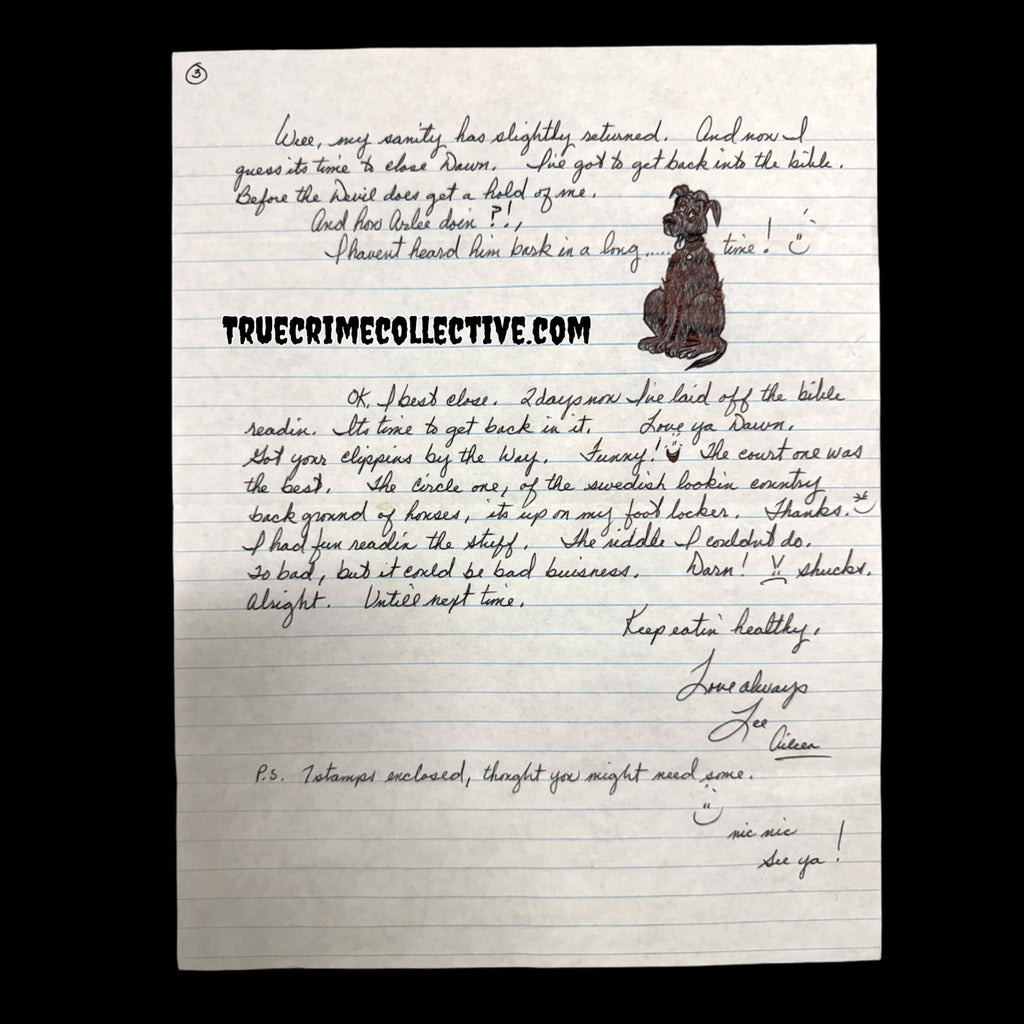 3
Well, my sanity has slightly returned. And now I
guess its time to close Dawn. I've got to get back into the bible.
Before the Devil does get a hold of me.
And hows Arlee doin ?!,
I havent heard him bark in a long..... time!
TRUECRIMECOLLECTIVE.COM
OK, I best close. 2 days now I've laid off the bible
readin. Its time to get back in it. Love ya Dawn.
Got your clippins by the Way. Funny! The court one was
the best. The circle one, of the swedish lookin country
back ground of horses, its up on my foot locker. Thanks.
I had fun readin the stuff. The riddle I couldnt do.
To bad, but it could be bad buisness. Darn! shucks.
Alright. Untill next time.
Keep eatin' healthy,
Love always
Lee
Aileen
P.S. 7 stamps enclosed, thought you might need some.
nic nic
See ya!